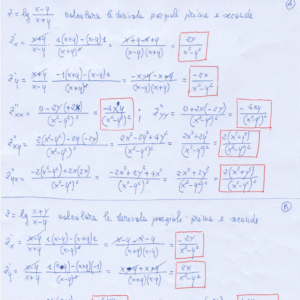 A
z = lg x-y/x+y calcolare le derivate parziali prime e seconde
z'x = x+y/x-y · 1(x+y)-(x-y)1/(x+y)² = x+y-x+y/(x-y)(x+y) = 2y/x²-y²
z'y = x+y/x-y · -1(x+y)-(x-y)1/(x+y)² = -x-y-x+y/(x-y)(x+y) = -2x/x²-y²
z''xx = 0-2y(+2x)/(x²-y²)² = -4xy/(x²-y²)² ; z''yy = 0+2x(-2y)/(x²-y²)² = -4xy/(x²-y²)²
z''xy = 2(x²-y²)-2y(-2y)/(x²-y²)² = 2x²-2y²+4y²/(x²-y²)² = 2x²+2y²/(x²-y²)² = 2(x²+y²)/(x²-y²)²
z''yx = -2(x²-y²)+2x(2x)/(x²-y²)² = -2x²+2y²+4x²/(x²-y²)² = 2x²+2y²/(x²-y²)² = 2(x²+y²)/(x²-y²)²
B
z = lg x+y/x-y calcolare le derivate parziali prime e seconde
z'x = x-y/x+y · 1(x-y)-(x+y)1/(x-y)² = x-y-x-y/(x+y)(x-y) = -2y/x²-y²
z'y = x-y/x+y · 1(x-y)-(x+y)(-1)/(x-y)² = x-y+x+y/(x+y)(x-y) = 2x/x²-y²